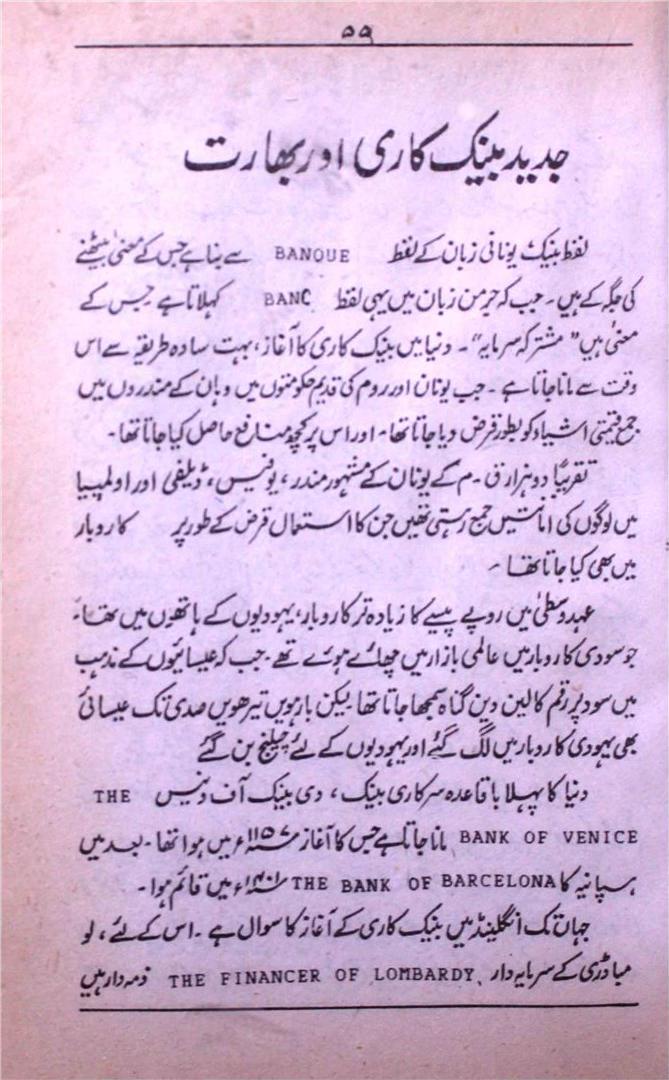 ۵۹
جدید بینک کاری اور بھارت
لفظ بینک یونانی زبان کے لفظ BANQUE سے بنا ہے جس کے معنیٰ بیٹھنے
کی جگہ کے ہیں۔ جب کہ جرمن زبان میں یہی لفظ BANC کہلاتا ہے جس کے
معنیٰ ہیں "مشترکہ سرمایہ"۔ دنیا میں بینک کاری کا آغاز، بہت سادہ طریقہ سے اس
وقت سے مانا جاتا ہے۔ جب یونان اور روم کی قدیم حکومتوں میں وہاں کے مندروں میں
جمع قیمتی اشیاء کو بطور قرض دیا جاتا تھا۔ اور اس پر کچھ منافع حاصل کیا جاتا تھا۔
تقریباً دو ہزار ق۔م کے یونان کے مشہور مندر، یونیس، ڈیلفی اور اولمپیا
میں لوگوں کی امانتیں جمع رہتی تھیں جن کا استعمال قرض کے طور پر کاروبار
میں بھی کیا جاتا تھا۔
عہد وسطیٰ میں روپے پیسے کا زیادہ تر کاروبار، یہودیوں کے ہاتھوں میں تھا۔
جو سودی کاروبار میں عالمی بازار میں چھائے ہوئے تھے۔ جب کہ عیسائیوں کے مذہب
میں سود پر رقم کا لین دین گناہ سمجھا جاتا تھا لیکن بارہویں تیرھویں صدی تک عیسائی
بھی یہودی کاروبار میں لگ گئے اور یہودیوں کے لئے چیلنج بن گئے
دنیا کا پہلا باقاعدہ سرکاری بینک، دی بینک آف ونیس THE
BANK OF VENICE مانا جاتا ہے جس کا آغاز ۱۱۵۷ء میں ہوا تھا۔ بعد میں
ہسپانیہ کا THE BANK OF BARCELONA ۱۴۰۱ء میں قائم ہوا۔
جہاں تک انگلینڈ میں بینک کاری کے آغاز کا سوال ہے۔ اس کے لئے، لو
مباڈری کے سرمایہ دار THE FINANCER OF LOMBARDY، ذمہ دار ہیں